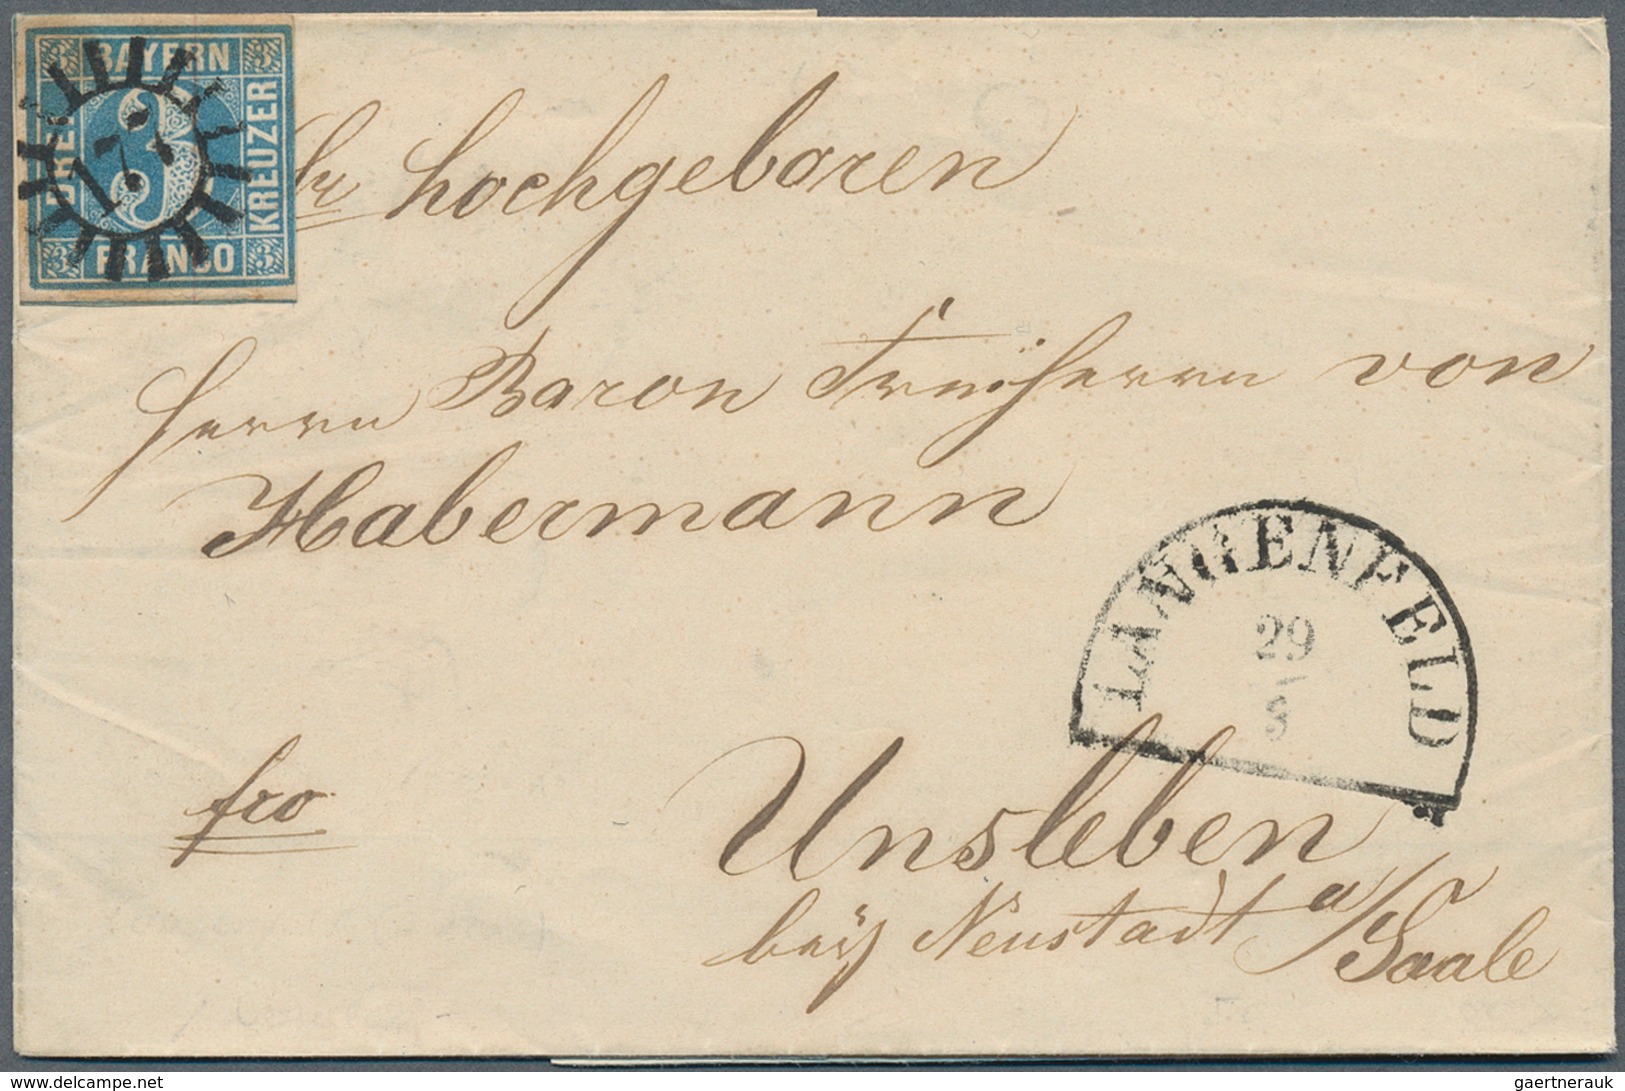 BAYERN
DREI
KREUZER
FRANCO
3 3
3
3 3
hochgeboren
Herrn Baron Freiherrn von
Habermann
LANGENFELD
29
8
fro
Unsleben
bey Neustadt a/Saale
www.delcampe.net
gaertnerauk